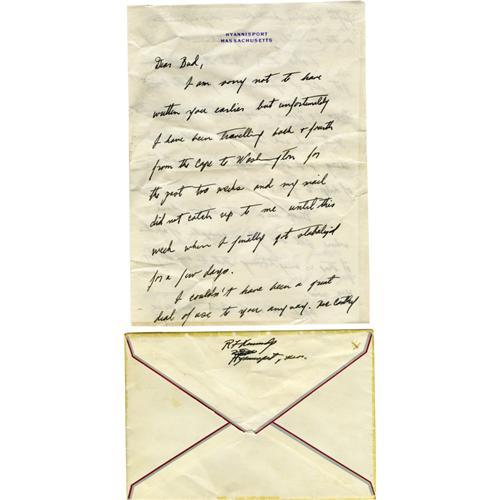 HYANNISPORT
MASSACHUSETTS
Dear Bud,
I am sorry not to have
written you earlier but unfortunately
I have been travelling back + fourth
from the Cape to Washington for
the past two weeks and my mail
did not catch up to me until this
week when I finally got stabalyzd
for a few days.
I couldn't have been a great
deal of use to you anyway. We
RF Kennedy
Hyannisport, Mass.